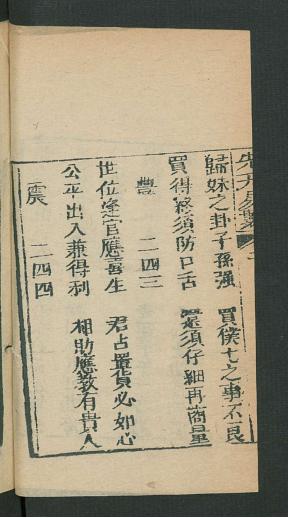 歸妹之卦子孫強　買僕七之事不良
買得終須防口舌　還須仔細再商量
豐　二四三
世位逢官應喜生　君占置貨必如心
公平出入兼得利　相助應教有貴人
震　二四四